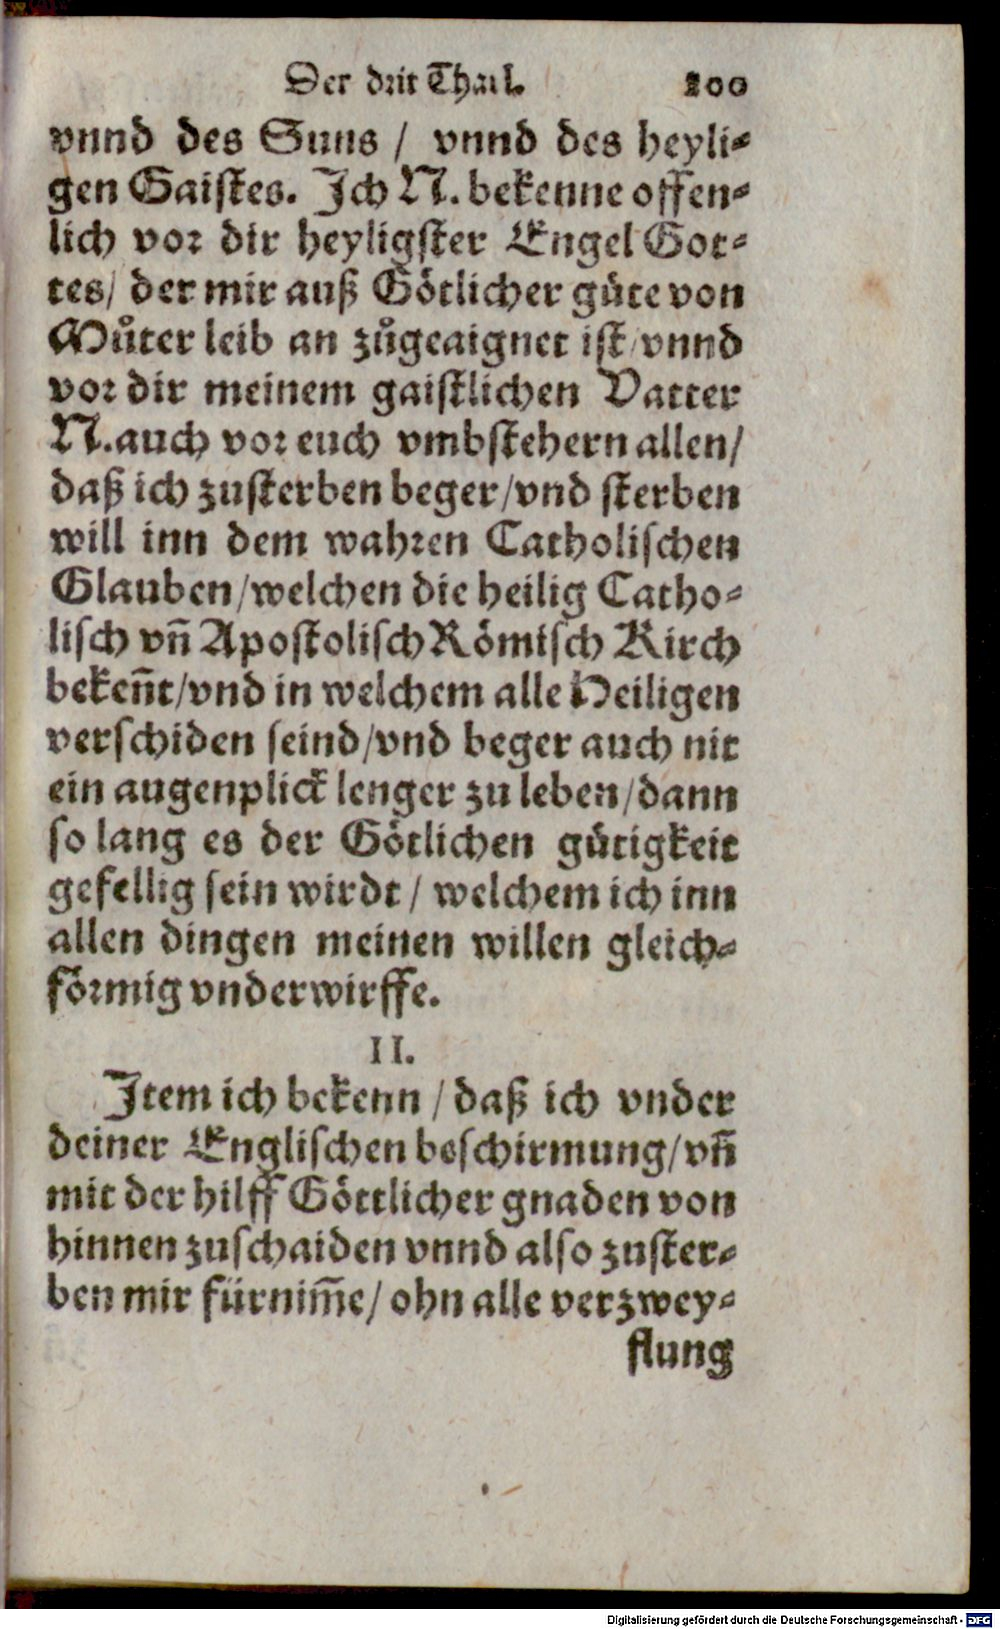 Der drit Thail. 200
vnnd des Suns / vnnd des heyli⸗
gen Gaistes. Ich N. bekenne offen⸗
lich vor dir heyligster Engel Got⸗
tes/ der mir auß Götlicher güte von
Můter leib an zůgeaignet ist/vnnd
vor dir meinem gaistlichen Vatter
N. auch vor euch vmbstehern allen/
daß ich zusterben beger/vnd sterben
will inn dem wahren Catholischen
Glauben/welchen die heilig Catho⸗
lisch vñ Apostolisch Römisch Kirch
bekeñt/vnd in welchem alle Heiligen
verschiden seind/vnd beger auch nit
ein augenplick lenger zu leben/dann
so lang es der Götlichen gütigkeit
gefellig sein wirdt / welchem ich inn
allen dingen meinen willen gleich⸗
förmig vnderwirffe.
II.
Item ich bekenn / daß ich vnder
deiner Englischen beschirmung/vñ
mit der hilff Göttlicher gnaden von
hinnen zuschaiden vnnd also zuster⸗
ben mir fürnim̃e/ ohn alle verzwey⸗
flung
Digitalisierung gefördert durch die Deutsche Forschungsgemeinschaft - DFG